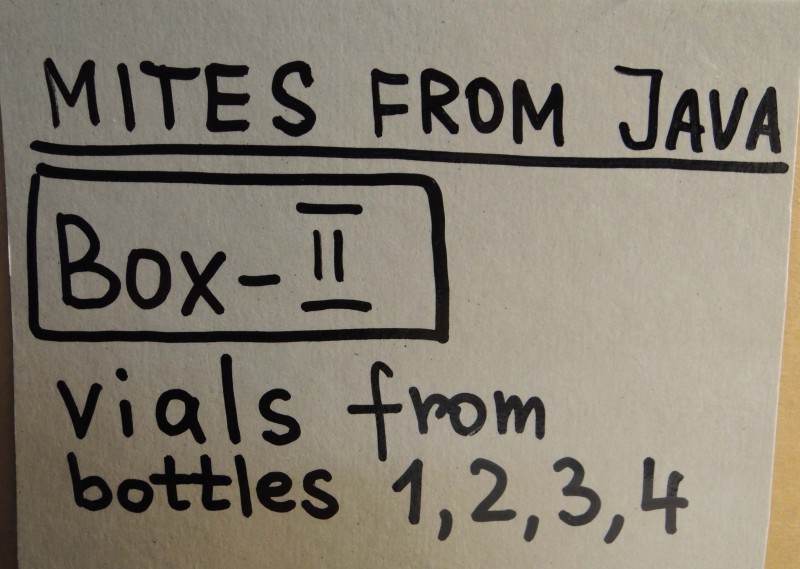 MITES FROM JAVA
BOX-II
vials from
bottles 1,2,3,4